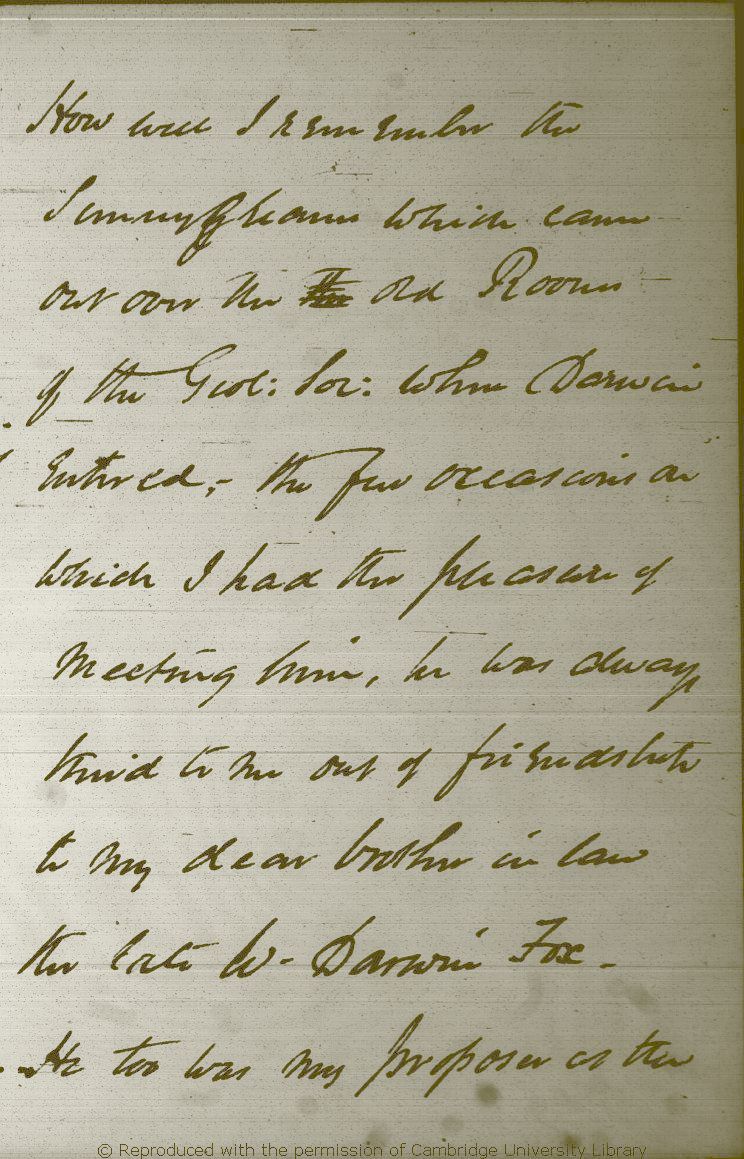 How well I remember the
Sunny gleams which came
out over the the old Rooms
of the Geol: Soc: when Darwin
entered,- the few occasions on
which I had the pleasure of
meeting him, he was always
kind to me out of friendship
to my dear brother in law
the late W- Darwin Fox -
He too was my proposer at the
© Reproduced with the permission of Cambridge University Library